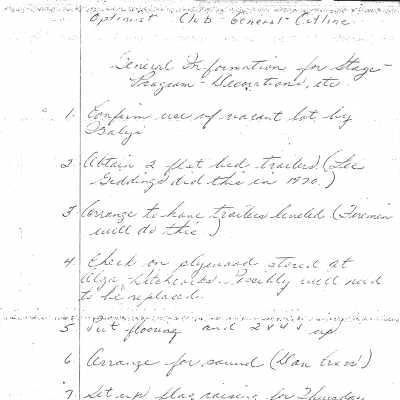 Optimist Club - General - Outline
General Information for Stage -
Program - Decorations, etc.
1. Confirm use of vacant lot by
2 Obtain 2 flat bed trailers. (Lee
Geddings did this in 1970.)
3 Arrange to have trailers leveled (Firemen
will do this)
4 Check on plywood stored at
Hitchcocks. Possibly will need
to be replaced.
5 Put flooring and 2x4's up
6 Arrange for sound (Dan
7 Set up flag raising for Thursday